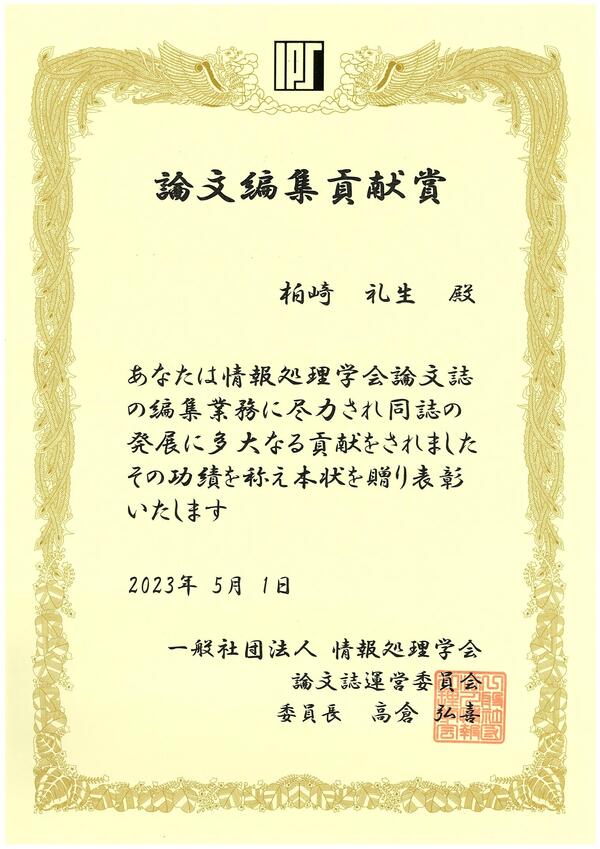 IPS
論文編集貢献賞
柏崎 礼生 殿
あなたは情報処理学会論文誌
の編集業務に尽力され同誌の
発展に多大なる貢献をされました
その功績を称え本状を贈り表彰
いたします
2023年 5月 1日
一般社団法人 情報処理学会
論文誌運営委員会
委員長 高倉 弘喜